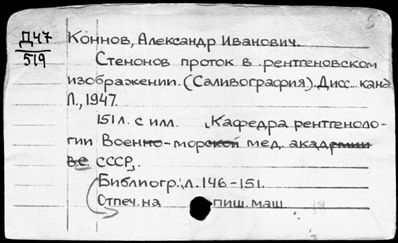 Д47
519
Коннов, Александр Иванович.
Стенонов проток в рентгеновском
изображении. (Саливография). Дисс. канд.
Л., 1947.
151 л. с илл. (Кафедра рентгеноло-
гии Военно-морской мед. академии
ве СССР).
Библиогр.: л. 146-151.
Отпеч. на пиш. маш.